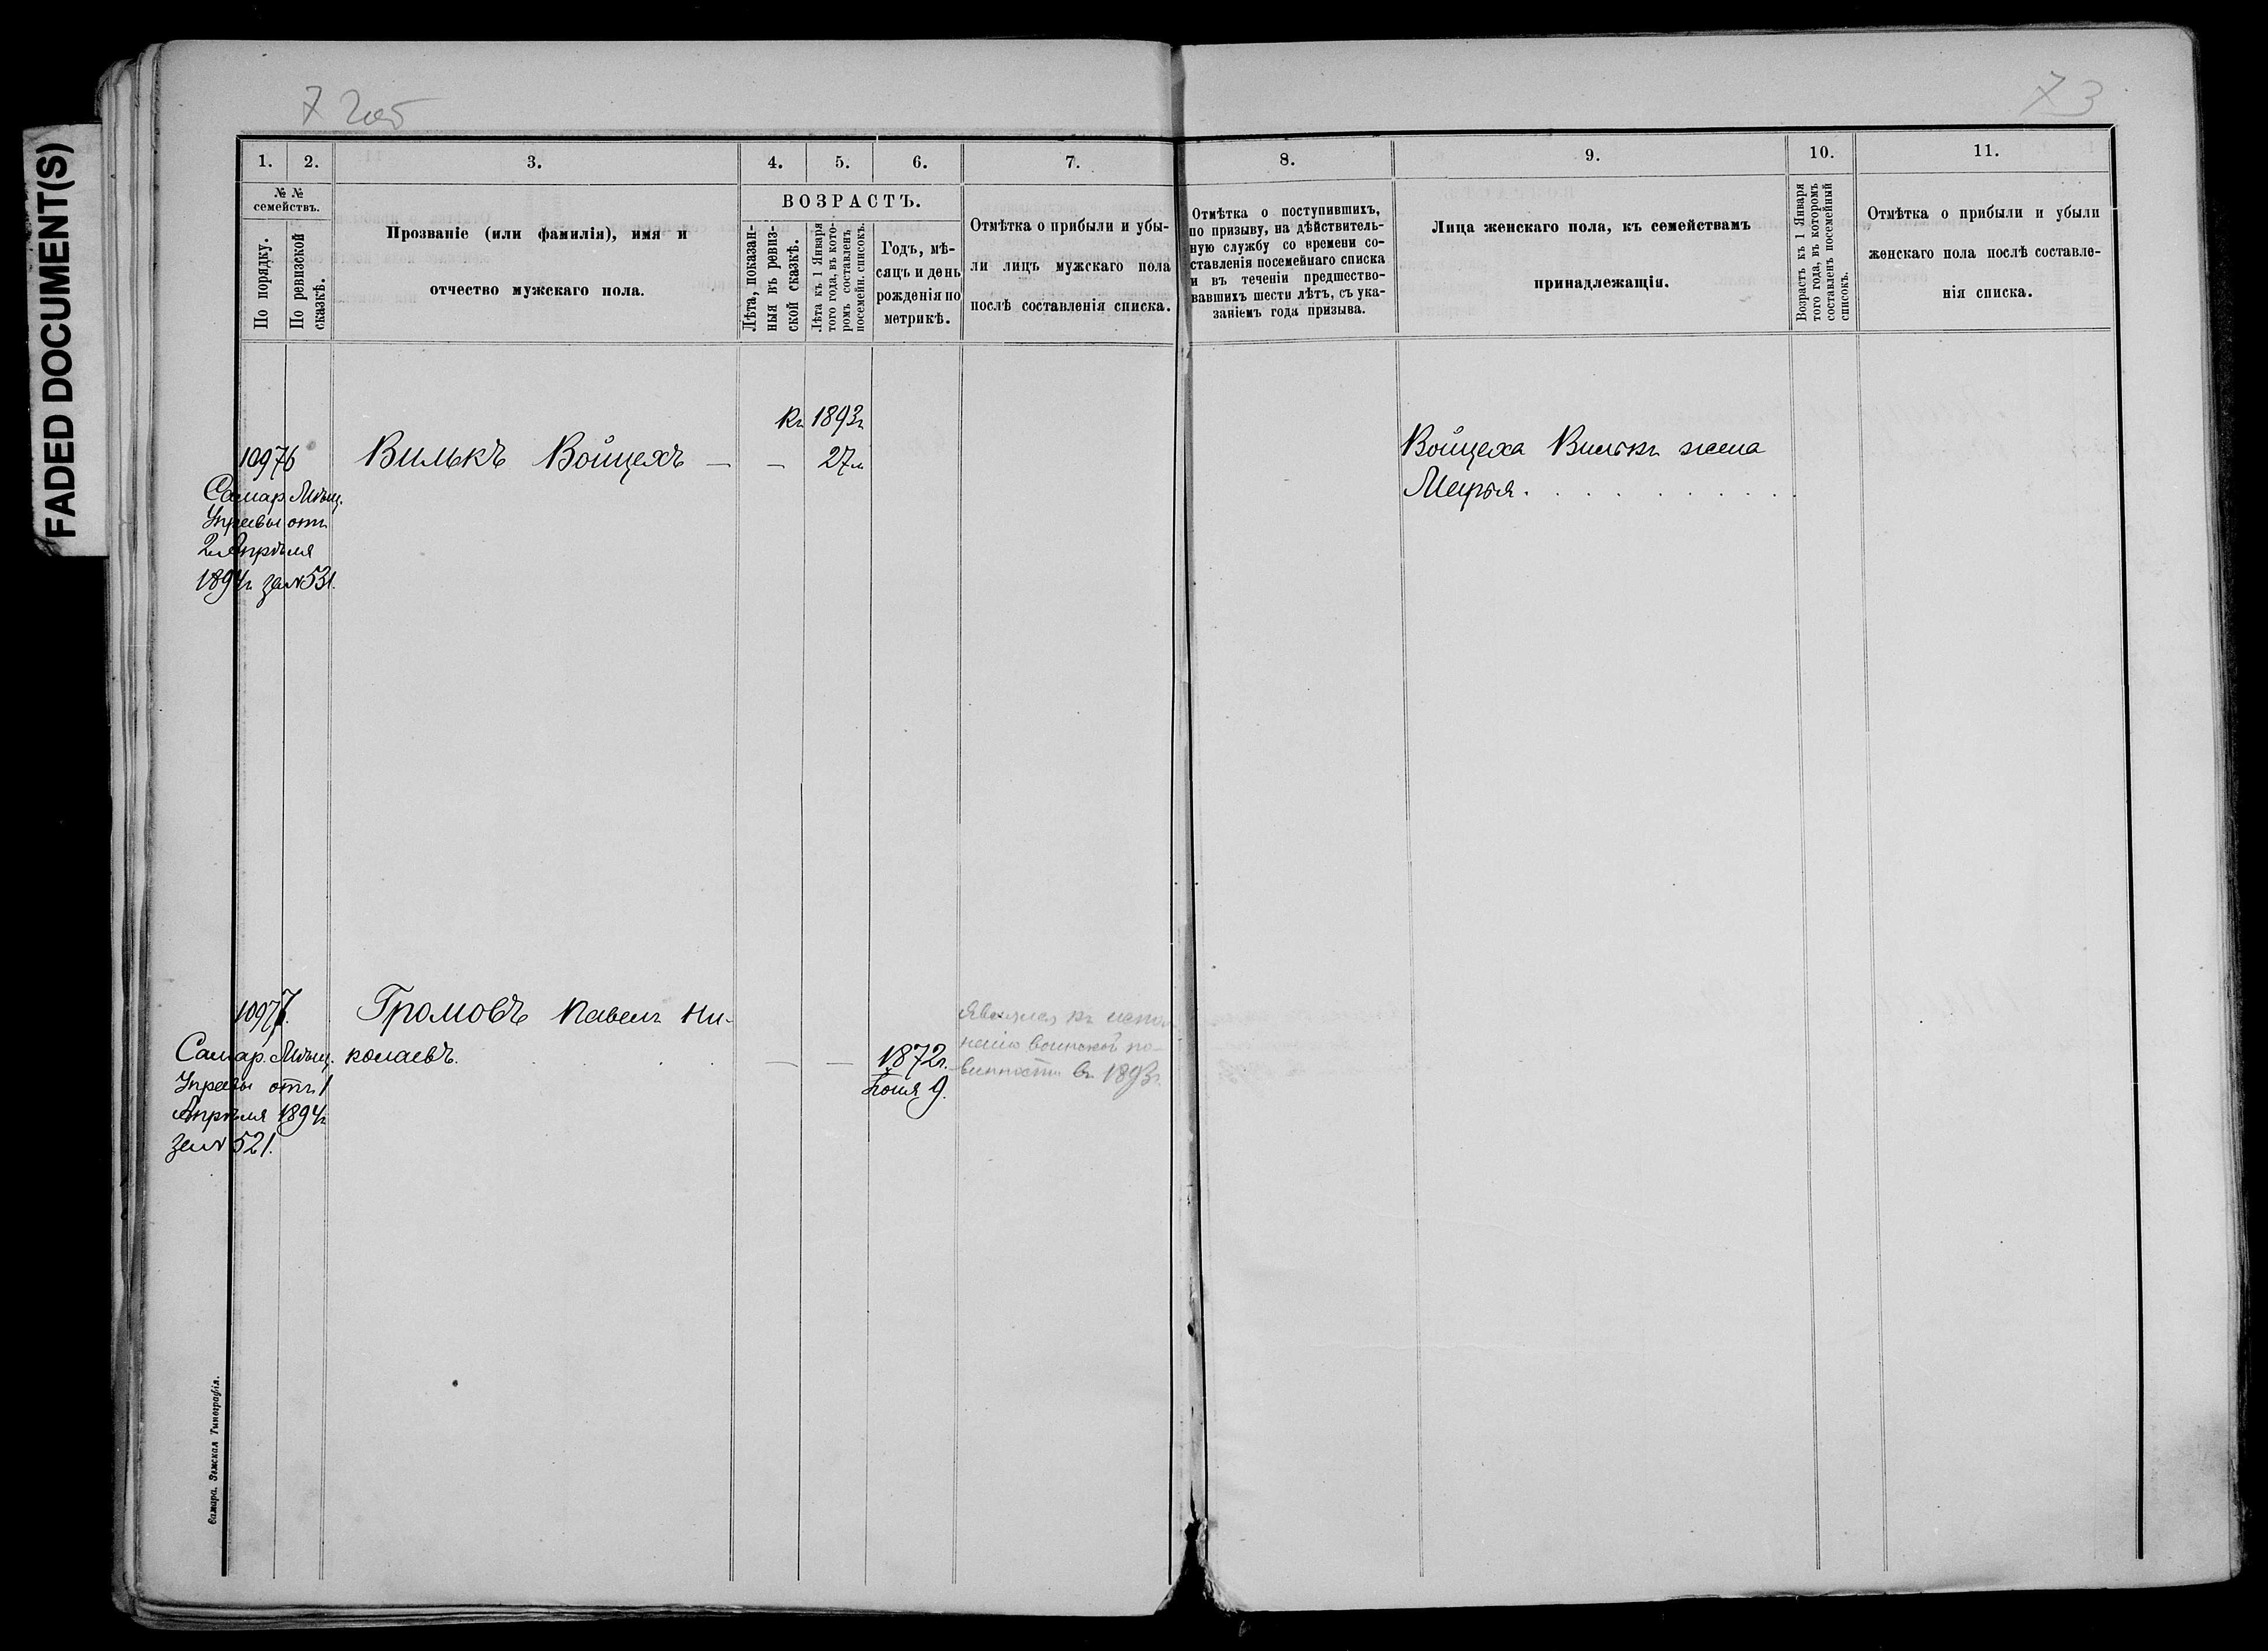 FADED DOCUMENT(S)
73
1.
2.
3.
4.
5.
6.
7.
8.
9.
10.
11.
№ №
семействъ.
По порядку.
По ревизской
сказкѣ.
Прозваніе (или фамилія), имя и
отчество мужскаго пола.
ВОЗРАСТЪ.
Лѣта, показан-
ныя въ ревиз-
ской сказкѣ.
Лѣта къ 1 Января
того года, въ кото-
ромъ составленъ
посемейн. списокъ.
Годъ, мѣ-
сяцъ и день
рожденія по
метрикѣ.
Отмѣтка о прибыли и убы-
ли лицъ мужскаго пола
послѣ составленія списка.
Отмѣтка о поступившихъ,
по призыву, на дѣйствитель-
ную службу со времени со-
ставленія посемейнаго списка
и въ теченіи предшество-
вавшихъ шести лѣтъ, съ ука-
заніемъ года призыва.
Лица женскаго пола, къ семействамъ
принадлежащія.
Возрастъ къ 1 Января
того года, въ которомъ
составленъ посемейный
списокъ.
Отмѣтка о прибыли и убыли
женскаго пола послѣ составле-
нія списка.
къ 1893г
10976 Вилькъ Войцехъ — — 27л
Самар. Мѣщ.
Управы отъ
2 Апрѣля
1894г за №531.
Войцеха Вилькъ жена
Марья . . . . . . . . . .
10977. Громовъ Павелъ Ни-
колаевъ. — — 1872г.
Іюня 9.
Самар. Мѣщ.
Управы отъ 1
Апрѣля 1894г
за № 521.
Являлся къ испол
ненію воинской по-
винности въ 1893г.
Самара. Земская Типографія.